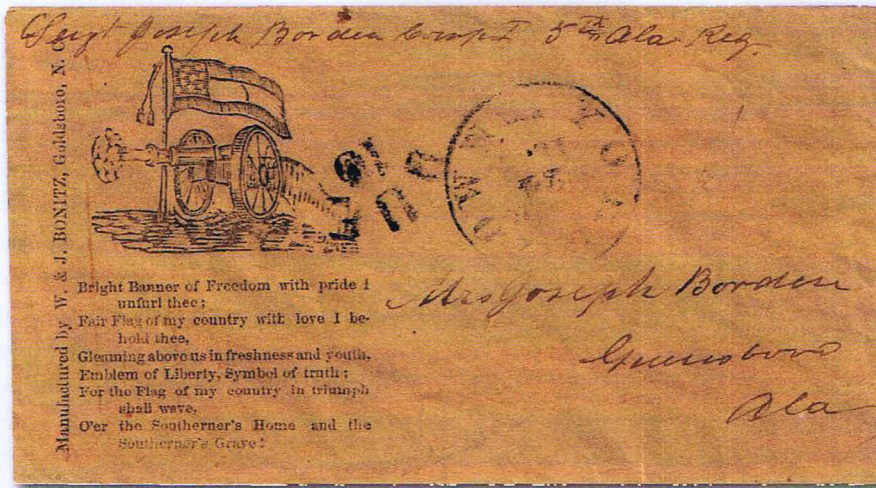 Sergt Joseph Borden Comp I 5th Ala Reg.
Manufactured by W. & J. BONITZ, Goldsboro, N. C.
Bright Banner of Freedom with pride I
unfurl thee;
Fair Flag of my country with love I be-
hold thee,
Gleaming above us in freshness and youth,
Emblem of Liberty, Symbol of truth;
For the Flag of my country in triumph
shall wave,
O'er the Southerner's Home and the
Southerner's Grave!
Mrs Joseph Borden
Greensboro
Ala